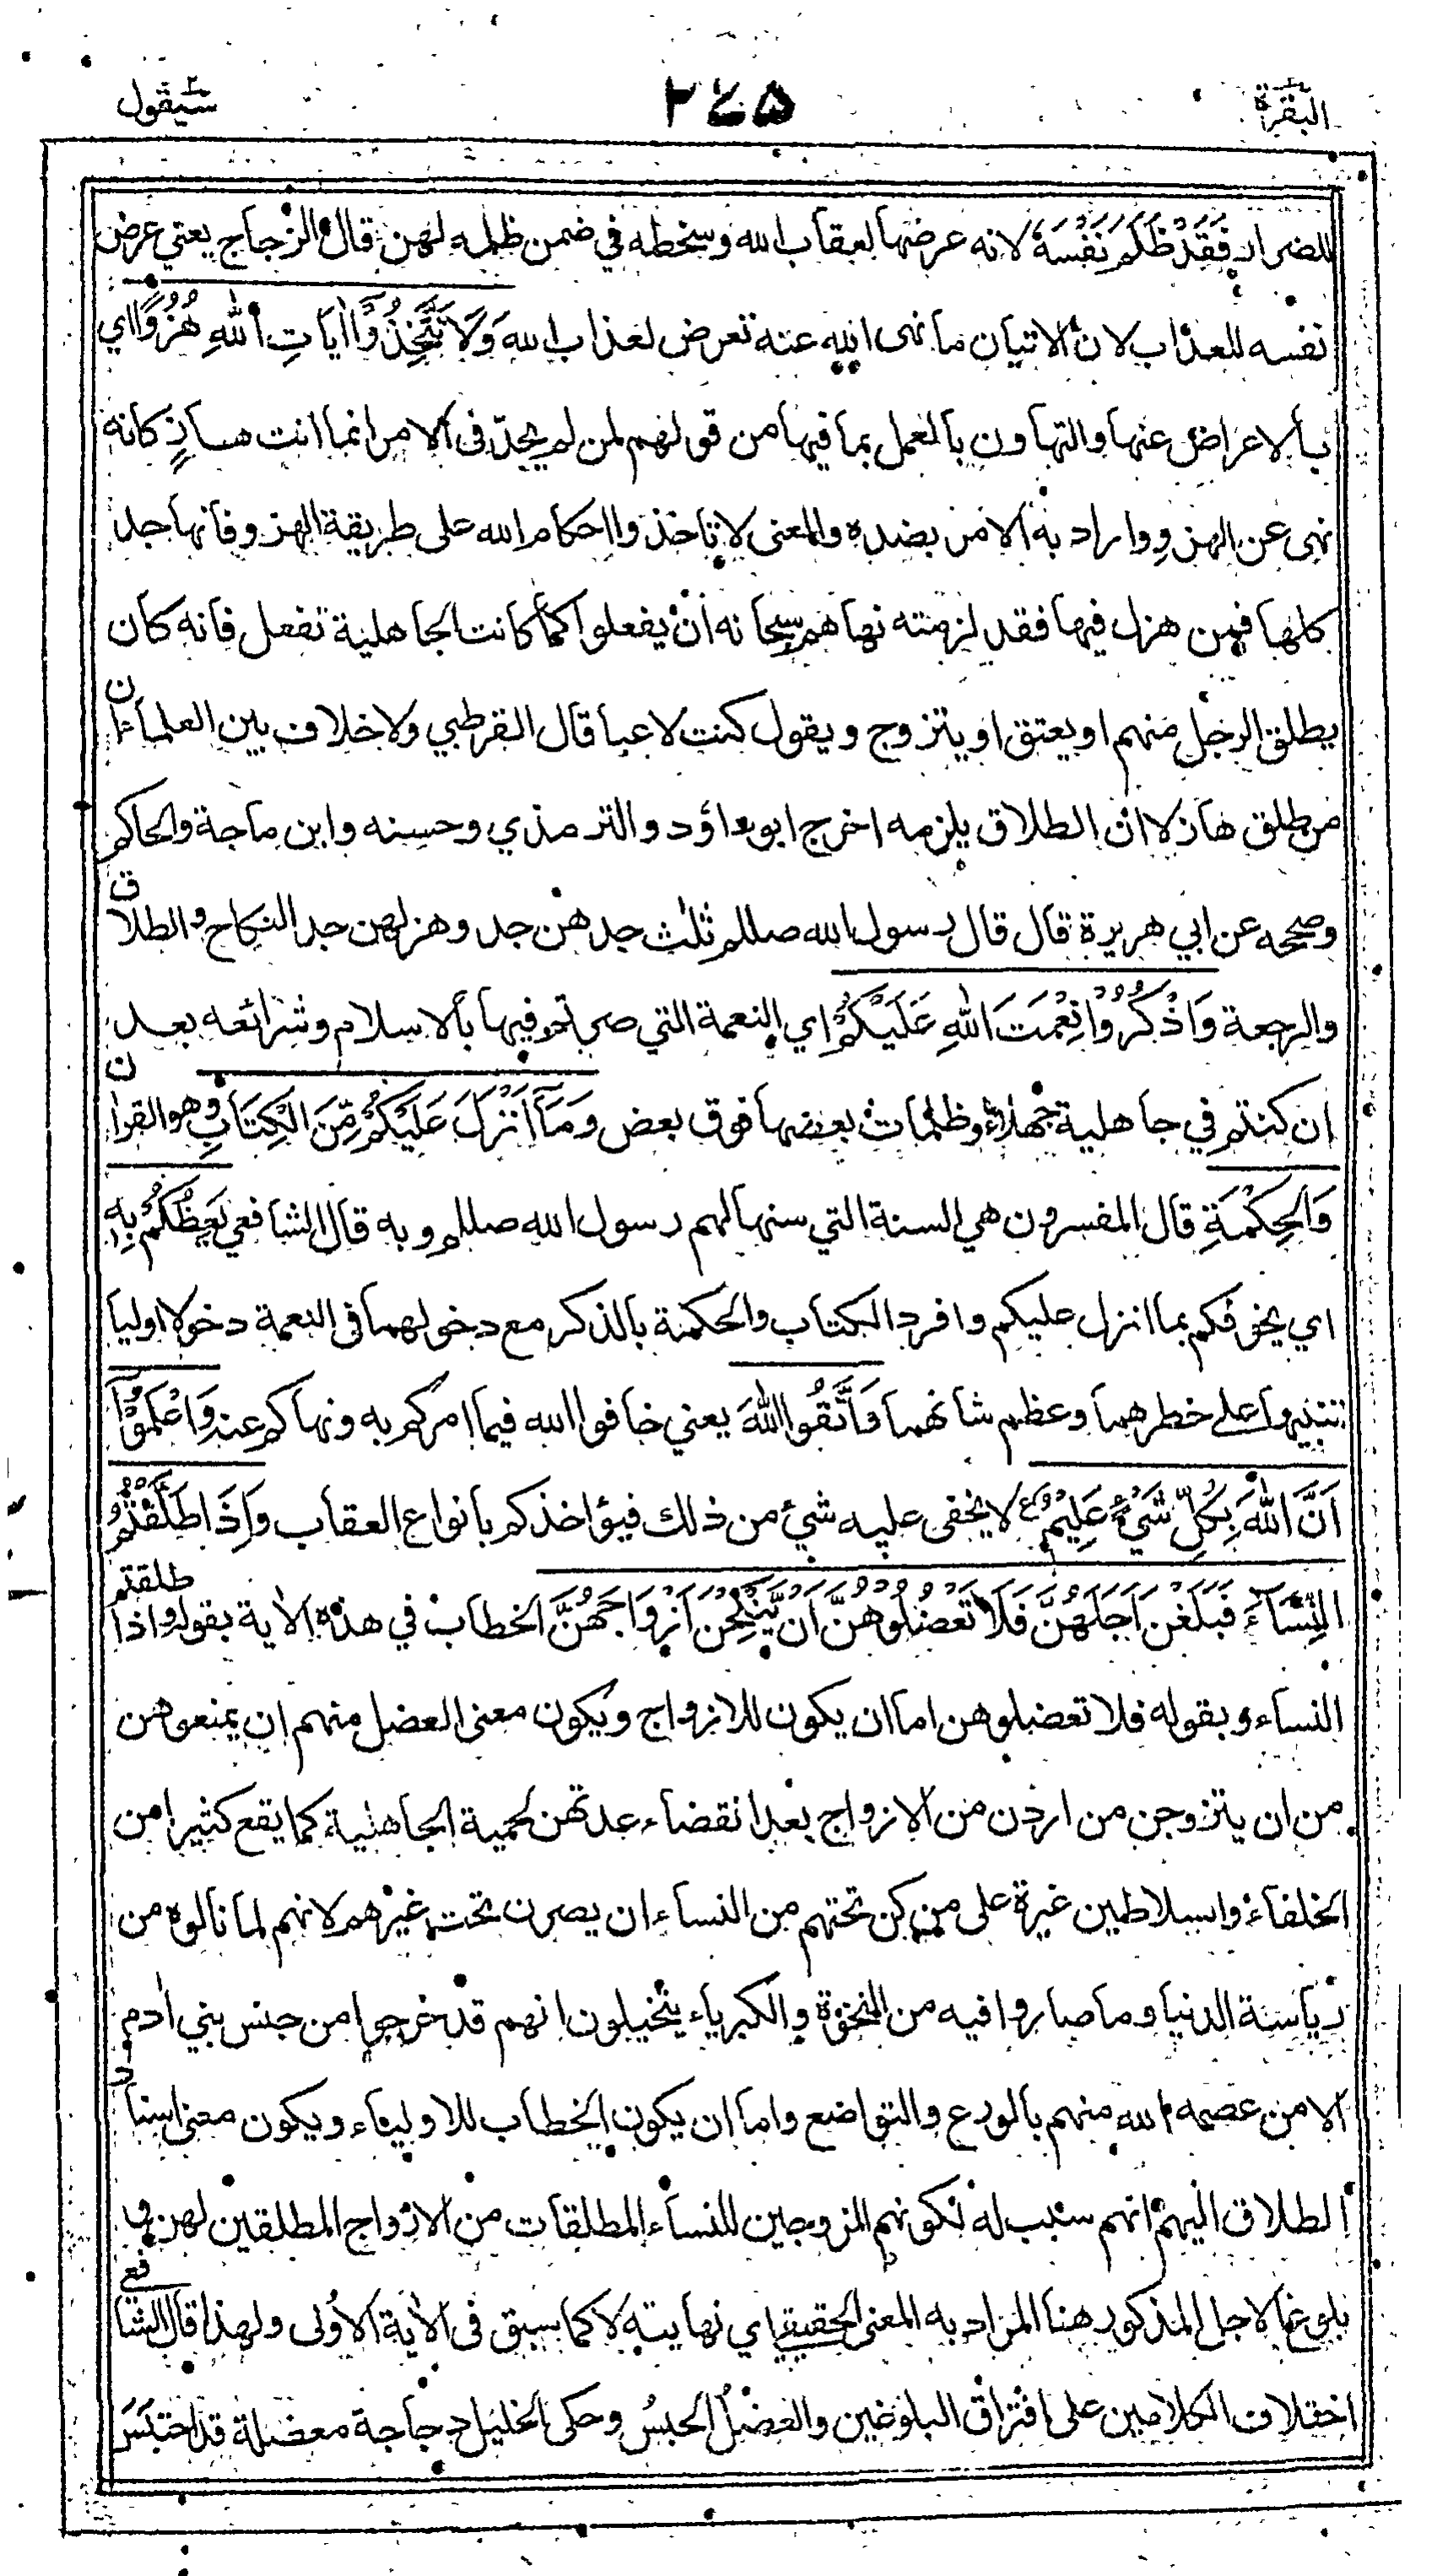 البقرة
٢٤٥
سيقول
للضرار فَقَدْ ظَلَمَ نَفْسَهُ لانه عرضها لعقاب الله وسخطه في ضمن ظلمه لهن قال الزجاج يعني عرض
نفسه للعذاب لان الاتيان ما نهى الله عنه تعرض لعذاب الله وَلَا تَتَّخِذُوْٓا اٰيَاتِ اللّٰهِ هُزُوًا اي
بالاعراض عنها والتهاون بالعمل بما فيها من قولهم لمن لم يجدّ في الامر انما انت هازئ كانه
نهى عن الهزو واراد به الامر بضده والمعنى لا تاخذوا احكام الله على طريقة الهزو فانها جد
كلها فمن هزل فيها فقد لزمته نهاهم سبحانه ان يفعلوا كما كانت الجاهلية تفعل فانه كان
يطلق الرجل منهم او يعتق او يتزوج ويقول كنت لاعبا قال القرطبي ولا خلاف بين العلماء ان
من طلق هازلا ان الطلاق يلزمه اخرج ابو داؤد والترمذي وحسنه وابن ماجة والحاكم
وصححه عن ابي هريرة قال قال رسول الله صللم ثلٰث جدهن جد وهزلهن جد النكاح والطلاق
والرجعة وَاذْكُرُوْا نِعْمَتَ اللّٰهِ عَلَيْكُمْ اي النعمة التي صرتم فيها بالاسلام وشرائعه بعد
ان كنتم في جاهلية جهلاء وظلمات بعضها فوق بعض وَمَآ اَنْزَلَ عَلَيْكُمْ مِّنَ الْكِتَابِ وهو القران
وَالْحِكْمَةِ قال المفسرون هي السنة التي سنها لهم رسول الله صللم وبه قال الشافعي يَعِظُكُمْ بِهٖ
اي يخوفكم بما انزل عليكم وافرد الكتاب والحكمة بالذكر مع دخولهما في النعمة دخولا اوليا
تنبيها على خطرهما وعظم شانهما وَاتَّقُوا اللّٰهَ يعني خافوا الله فيما امركم به ونهاكم عنه وَاعْلَمُوْٓا
اَنَّ اللّٰهَ بِكُلِّ شَيْءٍ عَلِيْمٌ ع لا يخفى عليه شئ من ذلك فيؤاخذكم بانواع العقاب وَاِذَا طَلَّقْتُمُ
النِّسَآءَ فَبَلَغْنَ اَجَلَهُنَّ فَلَا تَعْضُلُوْهُنَّ اَنْ يَّنْكِحْنَ اَزْوَاجَهُنَّ الخطاب في هذه الاٰية بقوله واذا طلقتم
النساء وبقوله فلا تعضلوهن اما ان يكون للازواج ويكون معنى العضل منهم ان يمنعوهن
من ان يتزوجن من اردن من الازواج بعد انقضاء عدتهن لحمية الجاهلية كما يقع كثيرا من
الخلفاء والسلاطين غيرة على من كن تحتهم من النساء ان يصرن تحت غيرهم لانهم لما نالوه من
رياسة الدنيا وما صاروا فيه من النخوة والكبرياء يتخيلون انهم قد خرجوا من جنس بني اٰدم
الا من عصمه الله منهم بالورع والتواضع واما ان يكون الخطاب للاولياء ويكون معنى اسناد
الطلاق اليهم انهم سبب له لكونهم المزوجين للنساء المطلقات من الازواج المطلقين لهن و
بلوغ الاجل المذكور هنا المراد به المعنى الحقيقي اي نهايته لا كما سبق في الاٰية الاولى ولهذا قال الشافعي
اختلاف الكلامين على افتراق البلوغين والعضل الحبس وحكى الخليل دجاجة معضلة قد احتبس